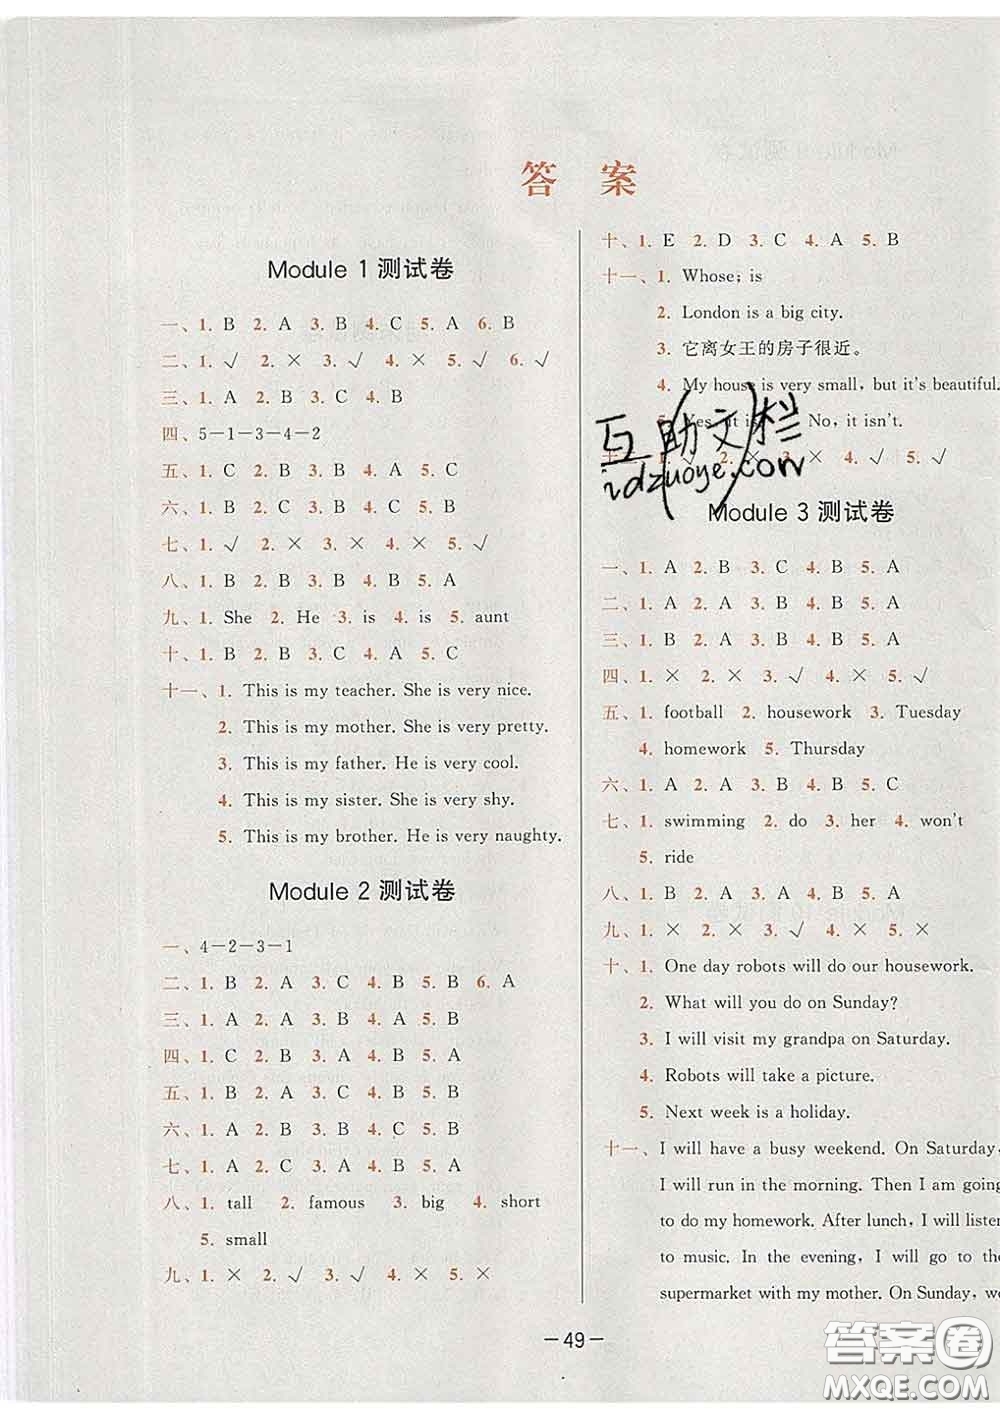 答 案
Module 1 测试卷
一、1. B 2. A 3. B 4. C 5. A 6. B
二、1. √ 2. × 3. √ 4. × 5. √ 6. √
三、1. A 2. B 3. C 4. B
四、5－1－3－4－2
五、1. C 2. B 3. C 4. B 5. C
六、1. B 2. C 3. B 4. B 5. C
七、1. √ 2. × 3. × 4. × 5. √
八、1. B 2. B 3. B 4. B 5. A
九、1. She 2. He 3. is 4. is 5. aunt
十、1. B 2. B 3. B 4. A 5. C
十一、1. This is my teacher. She is very nice.
2. This is my mother. She is very pretty.
3. This is my father. He is very cool.
4. This is my sister. She is very shy.
5. This is my brother. He is very naughty.
Module 2 测试卷
一、4－2－3－1
二、1. B 2. A 3. C 4. B 5. B 6. A
三、1. A 2. A 3. B 4. A 5. B
四、1. C 2. B 3. A 4. B 5. A
五、1. B 2. A 3. C 4. B 5. A
六、1. A 2. B 3. B 4. C 5. B
七、1. A 2. C 3. A 4. B 5. B
八、1. tall 2. famous 3. big 4. short
5. small
九、1. × 2. √ 3. √ 4. × 5. ×
十、1. E 2. D 3. C 4. A 5. B
十一、1. Whose; is
2. London is a big city.
3. 它离女王的房子很近。
4. My house is very small, but it's beautiful.
5. Yes, it is. No, it isn't.
2. × 3. × 4. √ 5. √
互助文栏
idzuoye.com
Module 3 测试卷
一、1. A 2. B 3. C 4. B 5. A
二、1. A 2. A 3. B 4. B 5. A
三、1. B 2. A 3. B 4. B 5. A
四、1. × 2. × 3. √ 4. × 5. √
五、1. football 2. housework 3. Tuesday
4. homework 5. Thursday
六、1. A 2. A 3. B 4. B 5. C
七、1. swimming 2. do 3. her 4. won't
5. ride
八、1. B 2. A 3. A 4. B 5. A
九、1. × 2. × 3. √ 4. × 5. ×
十、1. One day robots will do our housework.
2. What will you do on Sunday?
3. I will visit my grandpa on Saturday.
4. Robots will take a picture.
5. Next week is a holiday.
十一、I will have a busy weekend. On Saturday,
I will run in the morning. Then I am going
to do my homework. After lunch, I will listen
to music. In the evening, I will go to the
supermarket with my mother. On Sunday, we
－49－
答案圈
MXQE.COM